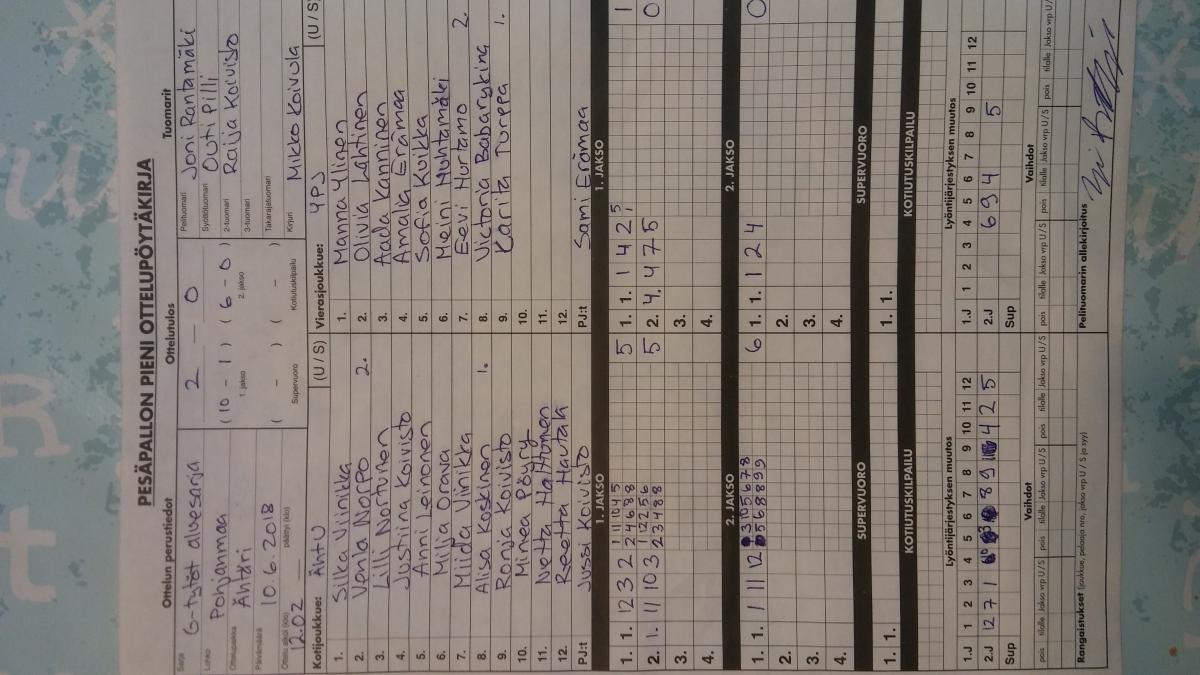 PESÄPALLON PIENI OTTELUPÖYTÄKIRJA
Ottelun perustiedot
Ottelutulos
Tuomarit
Sarja G-tytöt aluesarja
Lohko Pohjanmaa
Ottelupaikka Ähtäri
Päivämäärä 10.6.2018
Ottelu alkoi (klo) 12.02 päättyi (klo)
2 - 0
(10 - 1) (6 - 0)
1. jakso 2. jakso
( - ) ( - )
Supervuoro Kotiutuskilpailu
Pelituomari Joni Rantamäki
Syöttötuomari Outi Pilli
2-tuomari Raija Koivisto
3-tuomari
Takarajatuomari
Kirjuri Mikko Koivula
Kotijoukkue: ÄhtU (U / S)
1. Silka Viinikka
2. Venla Norpo 2.
3. Lilli Niotunen
4. Justiina Koivisto
5. Anni Leinonen
6. Milja Orava
7. Miida Viinikka
8. Alisa Koskinen 1.
9. Ronja Koivisto
10. Minea Pöyry
11. Netta Halttunen
12. Reetta Hautala
PJ:t Jussi Koivisto
Vierasjoukkue: YPJ (U / S)
1. Manna Ylinen
2. Olivia Lahtinen
3. Aada Kanninen
4. Amalia Erämaa
5. Sofia Kuikka
6. Meini Huhtamäki
7. Eevi Hurtamo 2.
8. Victoria Babaryking
9. Kariita Turppa 1.
10.
11.
12.
PJ:t Sami Erämaa
1. JAKSO
1. 1. 12 3 2 2 4 6 8 8 5
2. 1. 11 10 3 2 3 4 8 8 5
3.
4.
1. JAKSO
1. 1. 1 4 2 5 1
2. 4. 4 7 5 0
3.
4.
2. JAKSO
1. 1. 1 11 12 5 6 8 8 9 9 6
2.
3.
4.
2. JAKSO
1. 1. 1 2 4 0
2.
3.
4.
SUPERVUORO
1. 1.
SUPERVUORO
1. 1.
KOTIUTUSKILPAILU
KOTIUTUSKILPAILU
Lyöntijärjestyksen muutos
1.J 1 2 3 4 5 6 7 8 9 10 11 12
2.J 12 7 1 8 9 4 2 5
Sup
Lyöntijärjestyksen muutos
1.J 1 2 3 4 5 6 7 8 9 10 11 12
2.J 6 9 4 5
Sup
Vaihdot
pois tilalle Jakso vrp U / S pois tilalle Jakso vrp U / S pois tilalle Jakso vrp U / S
Vaihdot
pois tilalle Jakso vrp U / S pois tilalle Jakso vrp U / S pois tilalle Jakso vrp U /
Rangaistukset (joukkue, pelaaja nro, jakso vrp U / S ja syy)
Pelituomarin allekirjoitus